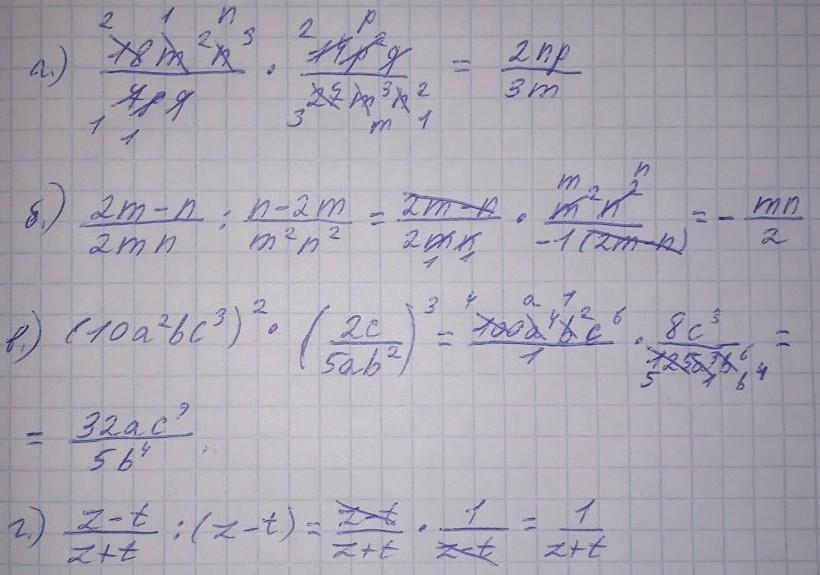 а.) (18m²n³)/(7pq) · (14p²q)/(27m³n²) = (2np)/(3m)
б.) (2m-n)/(2mn) : (n-2m)/(m²n²) = (2m-n)/(2mn) · (m²n²)/(-1(2m-n)) = - (mn)/2
в.) (10a²bc³)² · (2c/(5ab²))³ = (100a⁴b²c⁶)/1 · (8c³)/(125a³b⁶) =
= (32ac⁹)/(5b⁴)
г.) (z-t)/(z+t) : (z-t) = (z-t)/(z+t) · 1/(z-t) = 1/(z+t)